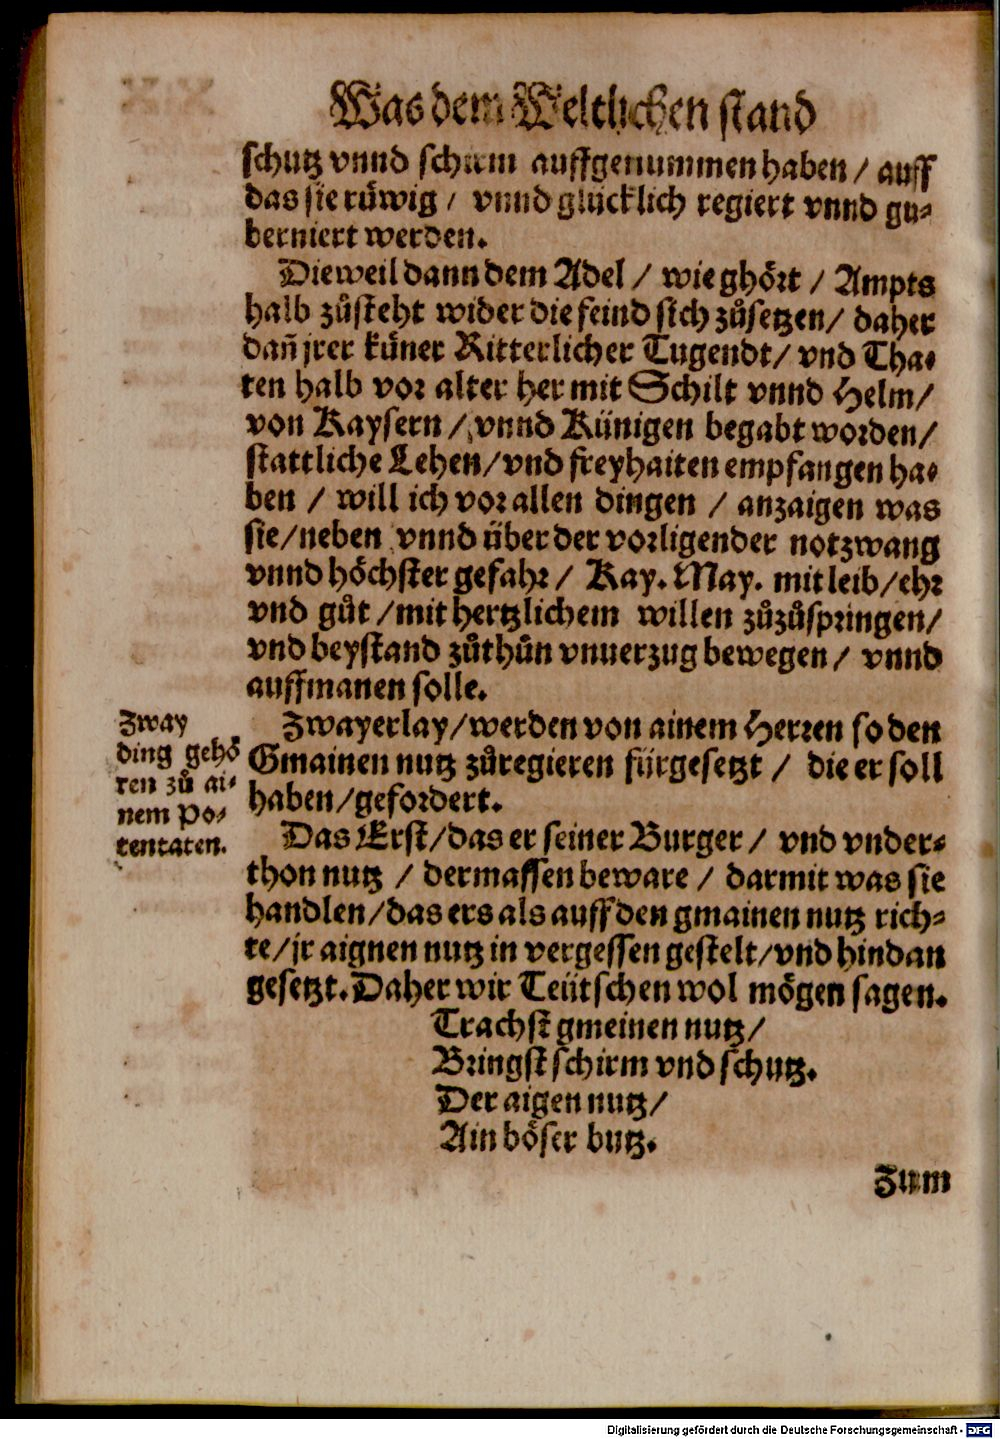 Was dem Weltlichen stand
schutz vnnd schirm auffgenummen haben / auff
das sie rüwig / vnnd glücklich regiert vnnd gu-
berniert werden.
Dieweil dann dem Adel / wie ghört / Ampts
halb zůsteht wider die feind sich zůsetzen / daher
dañ jrer küner Ritterlicher Tugendt / vnd Tha-
ten halb vor alter her mit Schilt vnnd Helm /
von Kaysern / vnnd Künigen begabt worden /
stattliche Lehen / vnd freyhaiten empfangen ha-
ben / will ich vor allen dingen / anzaigen was
sie / neben vnnd über der vorligender notzwang
vnnd höchster gefahr / Kay. May. mit leib / ehr
vnd gůt / mit hertzlichem willen zůzůspringen /
vnd beystand zůthůn vnuerzug bewegen / vnnd
auffmanen solle.
Zway
ding gehö
ren zů ai-
nem Po-
tentaten.
Zwayerlay / werden von ainem Herren so den
Gmainen nutz zůregieren fürgesetzt / die er soll
haben / gefordert.
Das Erst / das er seiner Burger / vnd vnder-
thon nutz / dermassen beware / darmit was sie
handlen / das ers als auff den gmainen nutz rich-
te / jr aignen nutz in vergessen gestelt / vnd hindan
gesetzt. Daher wir Teütschen wol mögen sagen.
Trachst gmeinen nutz /
Bringst schirm vnd schutz.
Der aigen nutz /
Ain böser butz.
Zum
Digitalisierung gefördert durch die Deutsche Forschungsgemeinschaft - DFG